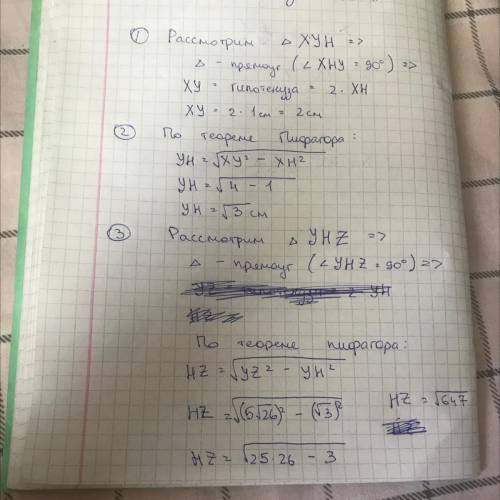 ① Рассмотрим △ ХУН =>
△ - прямоуг (∠ ХНУ = 90°) =>
ХУ = гипотенуза = 2 · ХН
ХУ = 2 · 1см = 2см
② По теореме Пифагора:
УН = √(ХУ² - ХН²)
УН = √(4 - 1)
УН = √3 см
③ Рассмотрим △ УНZ =>
△ - прямоуг (∠ УНZ = 90°) =>
По теореме пифагора:
HZ = √(УZ² - УН²)
HZ = √((5√26)² - (√3)²)
HZ = √647
HZ = √(25·26 - 3)